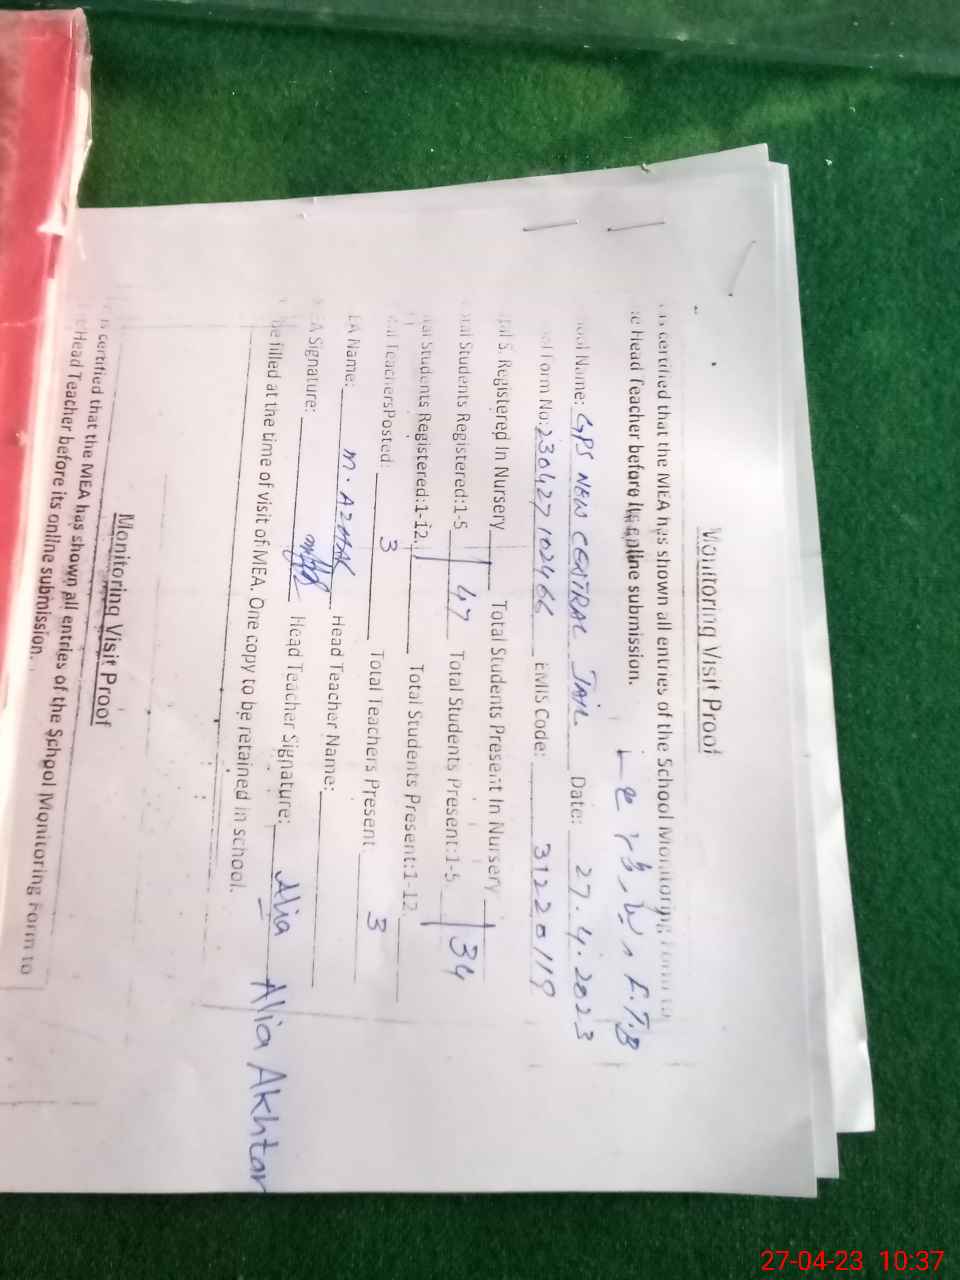 Monitoring Visit Proof
is certified that the MEA has shown all entries of the School Monitoring Form to
Head Teacher before its online submission.
F.T.B
Name: GPS NEW CENTRAL JAIL Date: 27.4.2023
Form No: 230427102466 EMIS Code: 31220119
S. Registered In Nursery Total Students Present In Nursery
Students Registered:1-5 47 Total Students Present:1-5 34
Students Registered:1-12. Total Students Present:1-12.
TeachersPosted: 3 Total Teachers Present 3
EA Name: M. AZHAR Head Teacher Name:
EA Signature: Head Teacher Signature: Alia
be filled at the time of visit of MEA. One copy to be retained in school. Alia Akhtar
Monitoring Visit Proof
is certified that the MEA has shown all entries of the School Monitoring Form to
Head Teacher before its online submission.
27-04-23 10:37